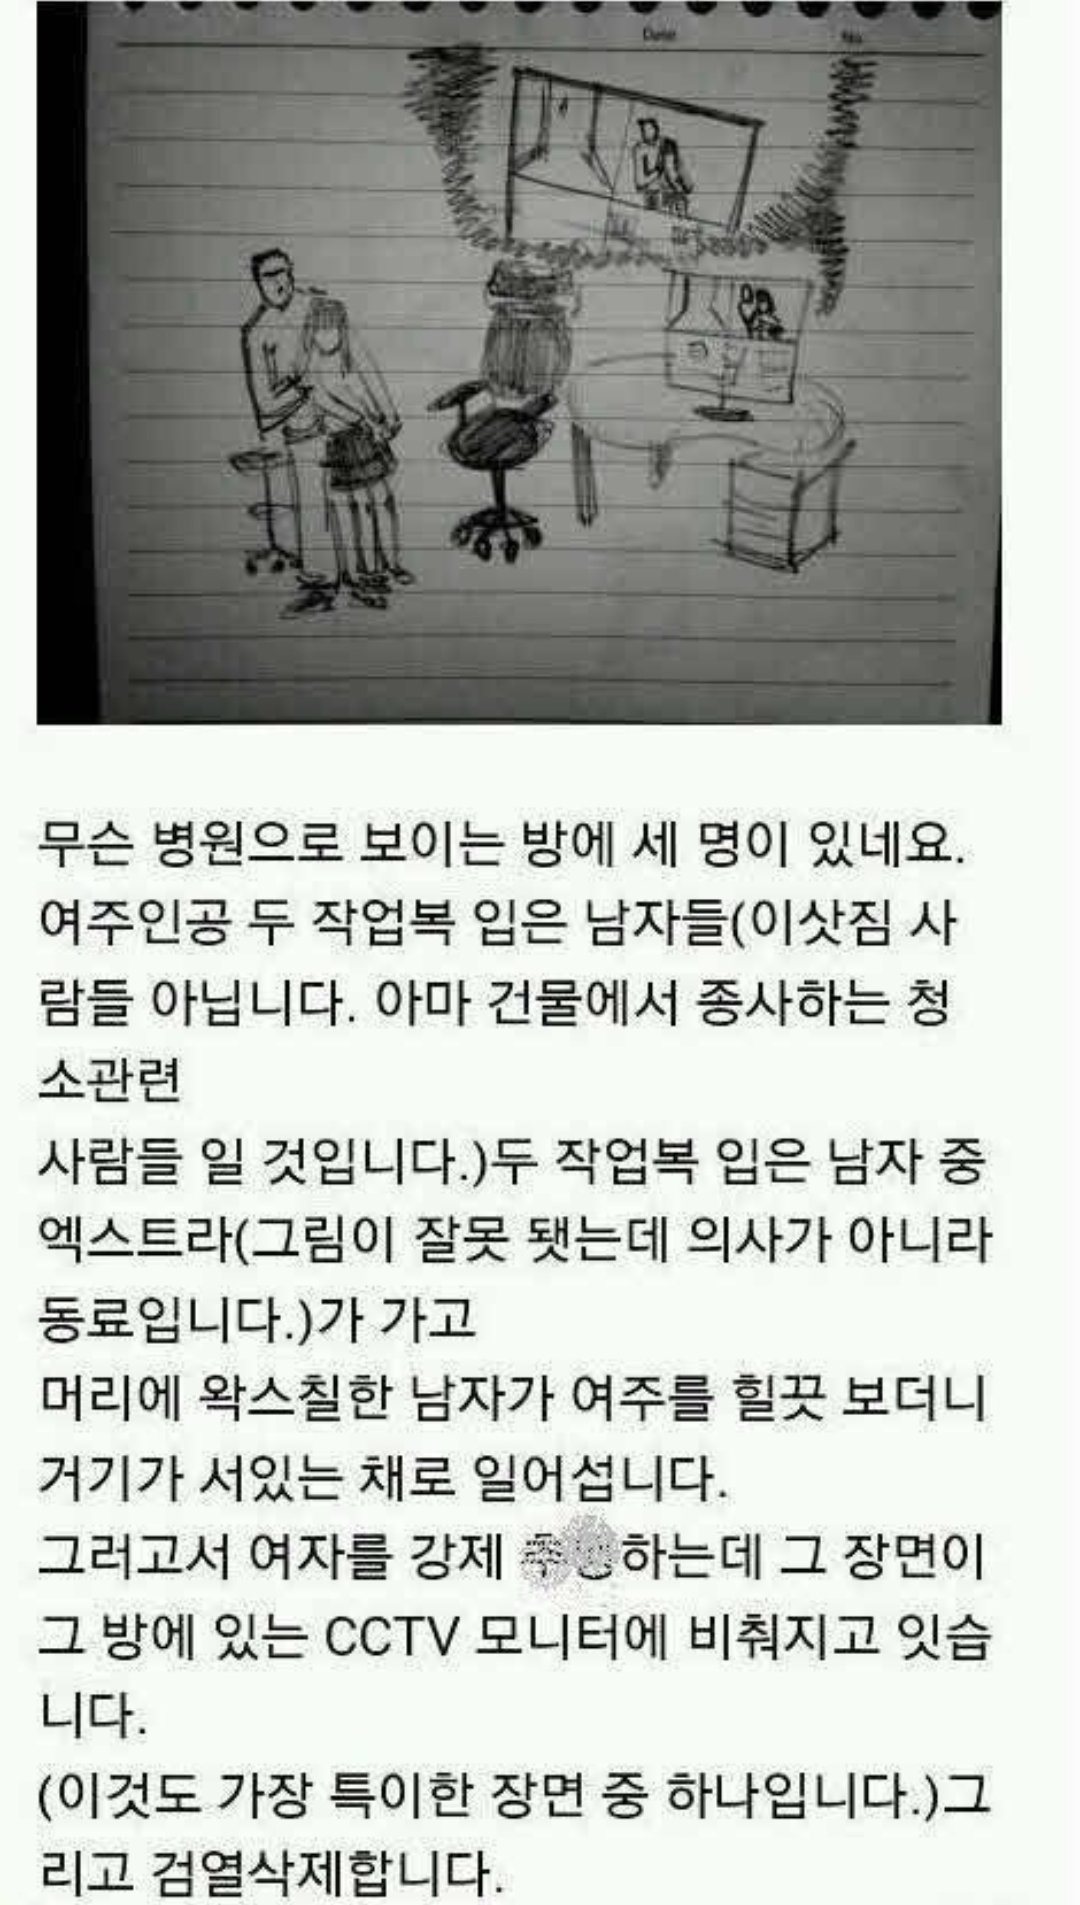 Date
No.
무슨 병원으로 보이는 방에 세 명이 있네요.
여주인공 두 작업복 입은 남자들(이삿짐 사
람들 아닙니다. 아마 건물에서 종사하는 청
소관련
사람들 일 것입니다.)두 작업복 입은 남자 중
엑스트라(그림이 잘못 됐는데 의사가 아니라
동료입니다.)가 가고
머리에 왁스칠한 남자가 여주를 힐끗 보더니
거기가 서있는 채로 일어섭니다.
그러고서 여자를 강제 하는데 그 장면이
그 방에 있는 CCTV 모니터에 비춰지고 잇습
니다.
(이것도 가장 특이한 장면 중 하나입니다.)그
리고 검열삭제합니다.